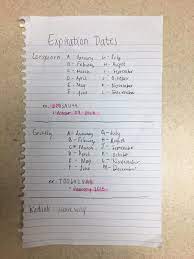 Expiration Dates
Longhorn A - January G - July
B - February H - August
C - March I - September
D - April J - October
E - May K - November
F - June L - December
ex.
Grizzly A - January G - July
B - February H - August
C - March I - September
D - April J - October
E - May K - November
F - June L - December
ex.
Kodiak - same way